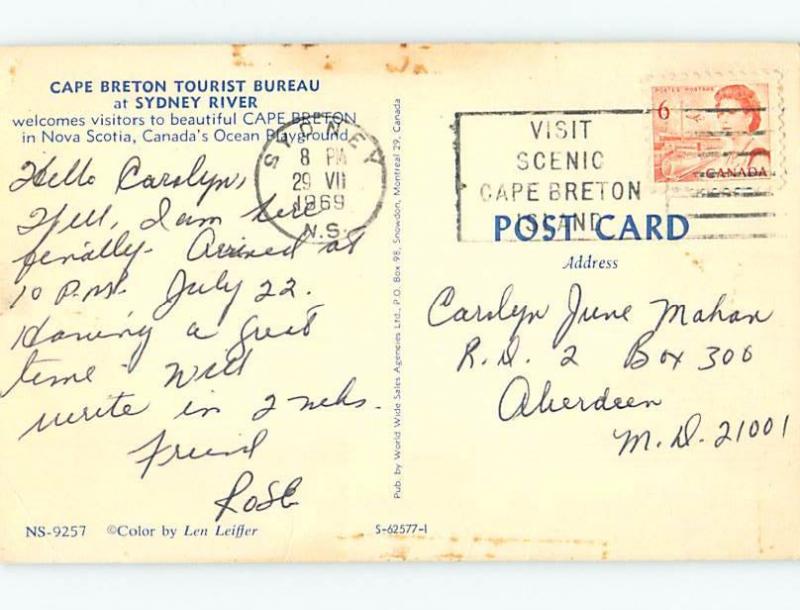 CAPE BRETON TOURIST BUREAU
at SYDNEY RIVER
welcomes visitors to beautiful CAPE BRETON
in Nova Scotia, Canada's Ocean Playground
Hello Carolyn,
Well, I am here
finally. Arrived at
10 P.M. July 22.
Having a great
time. Will
write in 2 wks.
Friend
Rose
NS-9257 ©Color by Len Leiffer
Pub. by World Wide Sales Agencies Ltd., P.O. Box 98, Snowdon, Montreal 29, Canada
S-62577-1
SYDNEY
8 PM
29 VII
1969
N.S.
VISIT
SCENIC
CAPE BRETON
ISLAND
POSTES POSTAGE
6
CANADA
POST CARD
Address
Carolyn June Mahan
R.D. 2 Box 300
Aberdeen
M.D. 21001